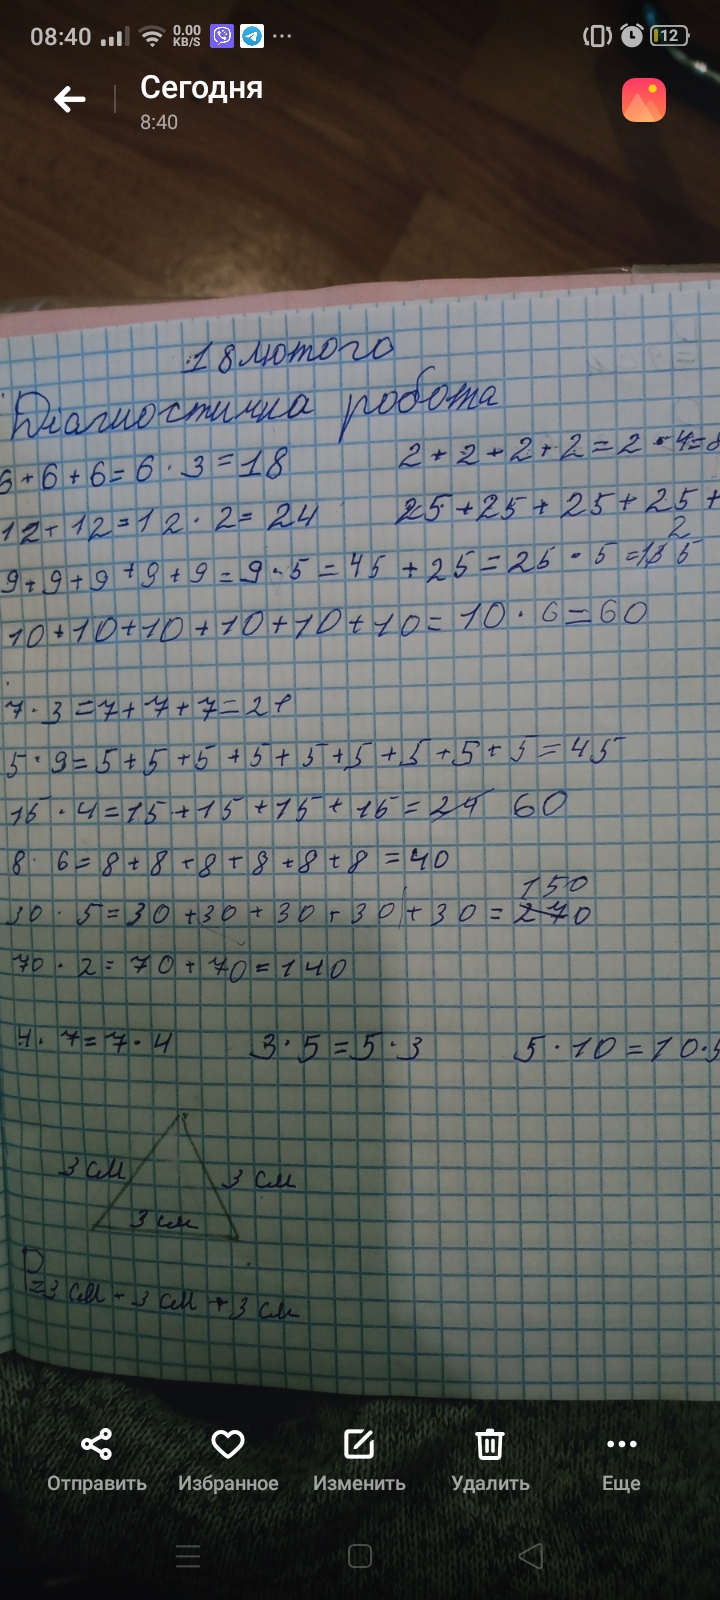 08:40 0.00 KB/S ... 12
Сегодня
8:40
18 лютого
Діагностична робота
6+6+6=6·3=18 2+2+2+2=2·4=8
12+12=12·2=24 25+25+25+25+
9+9+9+9+9=9·5=45 +25=25·5=125
10+10+10+10+10+10=10·6=60
7·3=7+7+7=21
5·9=5+5+5+5+5+5+5+5+5=45
15·4=15+15+15+15= 60
8·6=8+8+8+8+8+8=40
150
30·5=30+30+30+30+30=270
70·2=70+70=140
4·7=7·4 3·5=5·3 5·10=10·5
3 см 3 см
3 см
P=3 см+3 см+3 см
Отправить Избранное Изменить Удалить Еще